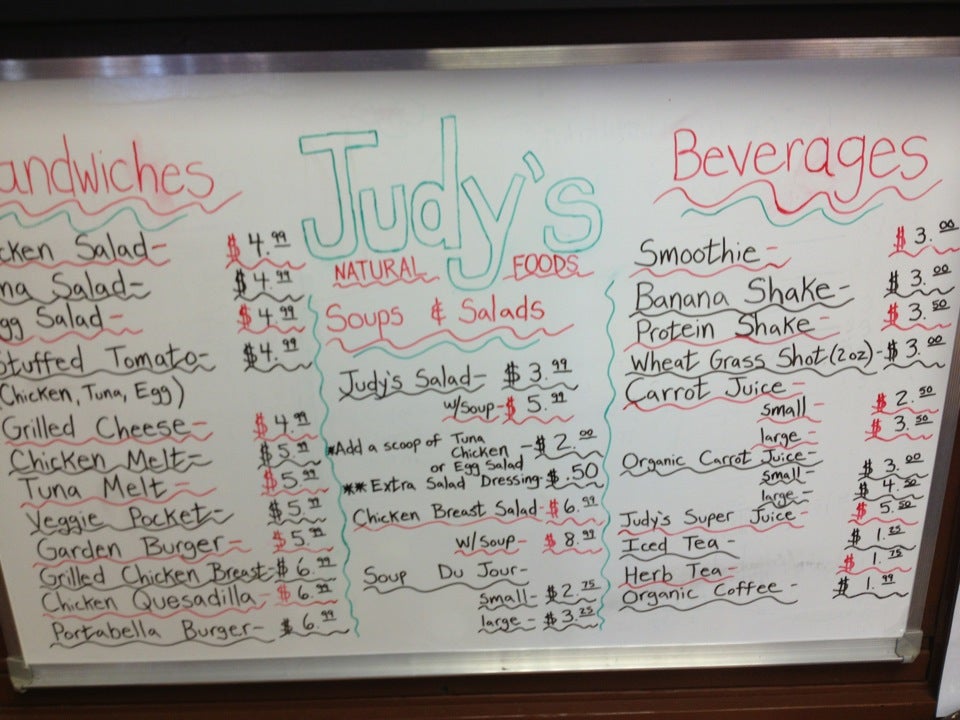 andwiches
cken Salad- $4.99
na Salad- $4.99
gg Salad- $4.99
Stuffed Tomato- $4.99
(Chicken, Tuna, Egg)
Grilled Cheese- $4.99
Chicken Melt- $5.99
Tuna Melt- $5.99
Veggie Pocket- $5.99
Garden Burger- $5.99
Grilled Chicken Breast- $6.99
Chicken Quesadilla- $6.99
Portabella Burger- $6.99
Judy's
NATURAL FOODS
Soups & Salads
Judy's Salad- $3.99
w/soup- $5.99
*Add a scoop of Tuna
Chicken - $2.00
or Egg Salad
** Extra Salad Dressing- $.50
Chicken Breast Salad- $6.99
w/soup- $8.99
Soup Du Jour-
small- $2.75
large- $3.25
Beverages
Smoothie- $3.00
Banana Shake- $3.00
Protein Shake- $3.50
Wheat Grass Shot (2oz)- $3.00
Carrot Juice-
small- $2.50
large- $3.50
Organic Carrot Juice-
small- $3.00
large- $4.50
Judy's Super Juice- $5.50
Iced Tea- $1.25
Herb Tea- $1.75
Organic Coffee- $1.99